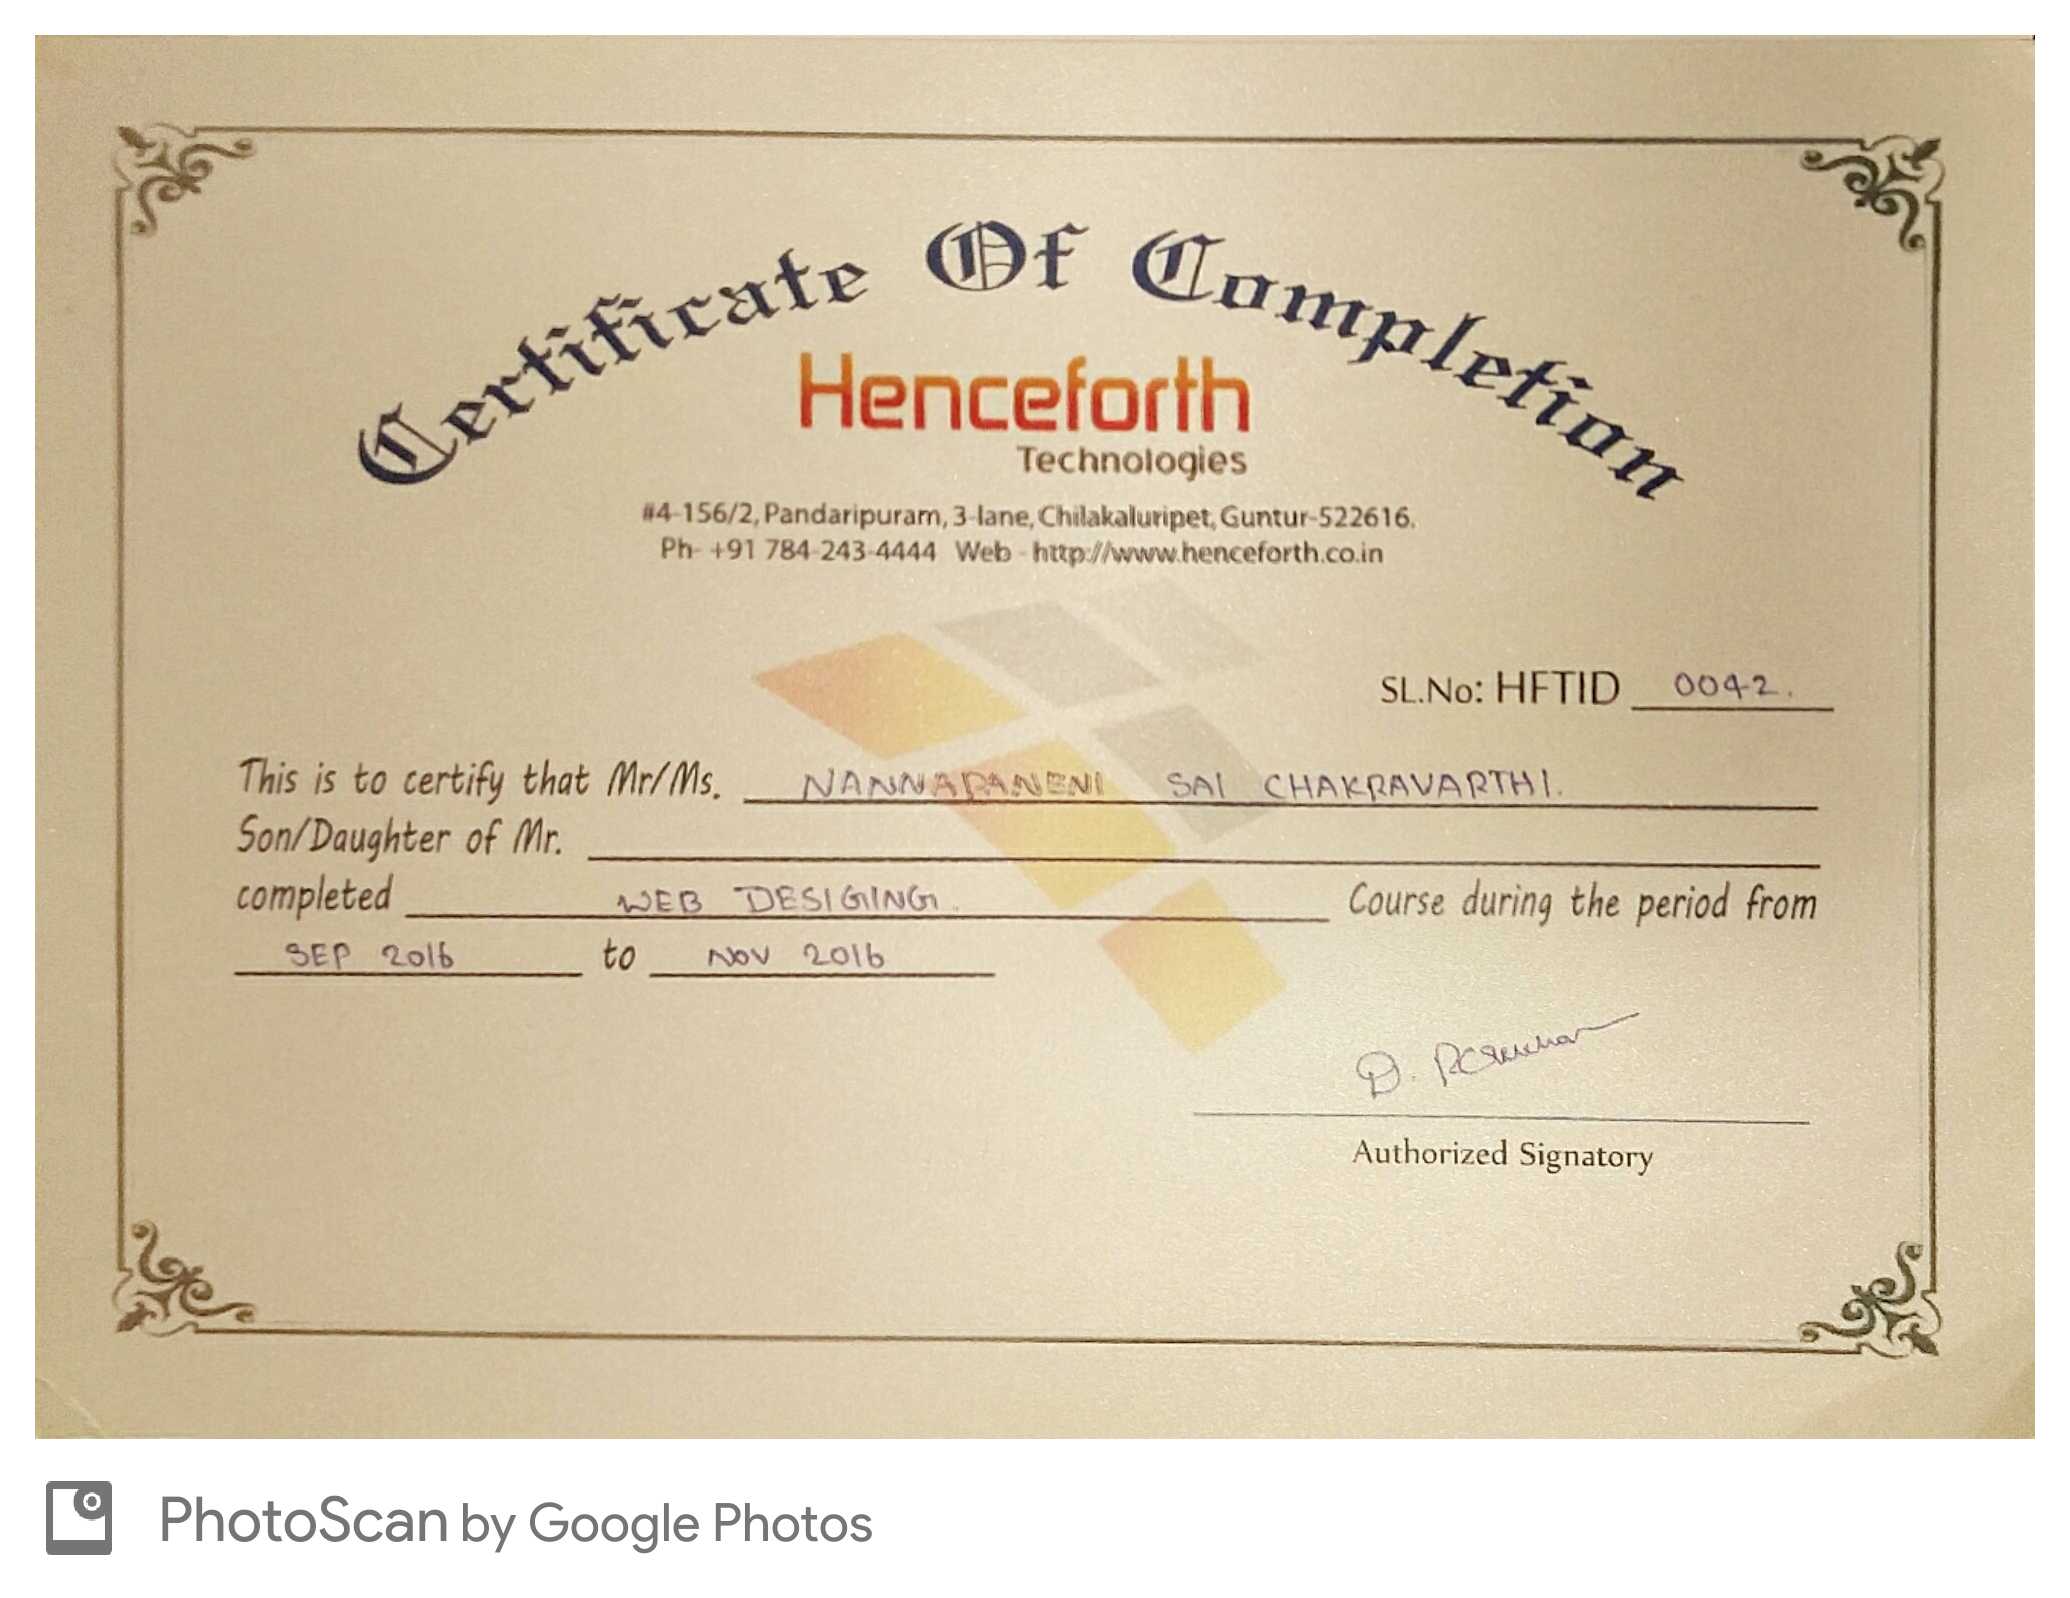 Certificate Of Completion
Henceforth
Technologies
#4-156/2, Pandaripuram, 3-lane, Chilakaluripet, Guntur-522616.
Ph- +91 784-243-4444 Web - http://www.henceforth.co.in
SL.No: HFTID 0042.
This is to certify that Mr/Ms. NANNAPANENI SAI CHAKRAVARTHI.
Son/Daughter of Mr.
completed WEB DESIGING. Course during the period from
SEP 2016 to NOV 2016
D.
Authorized Signatory
PhotoScan by Google Photos